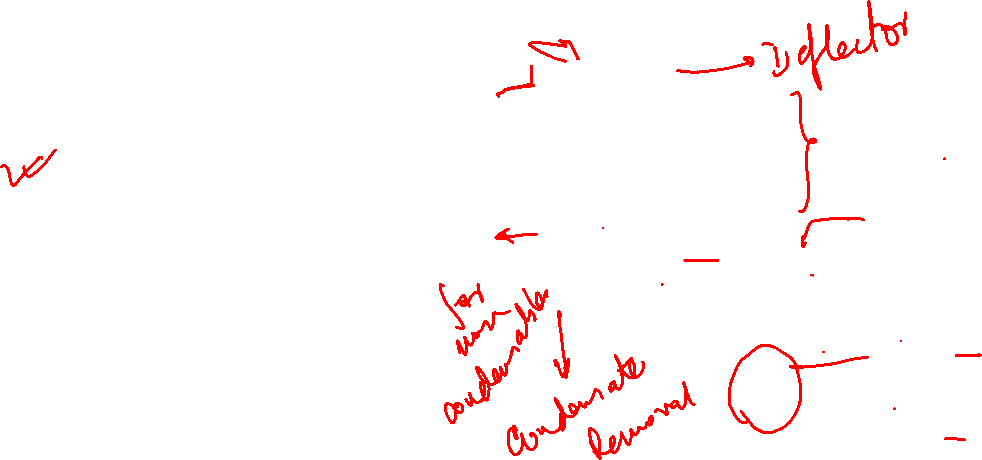 Deflector
for
non
condensable
Condensate
Removal